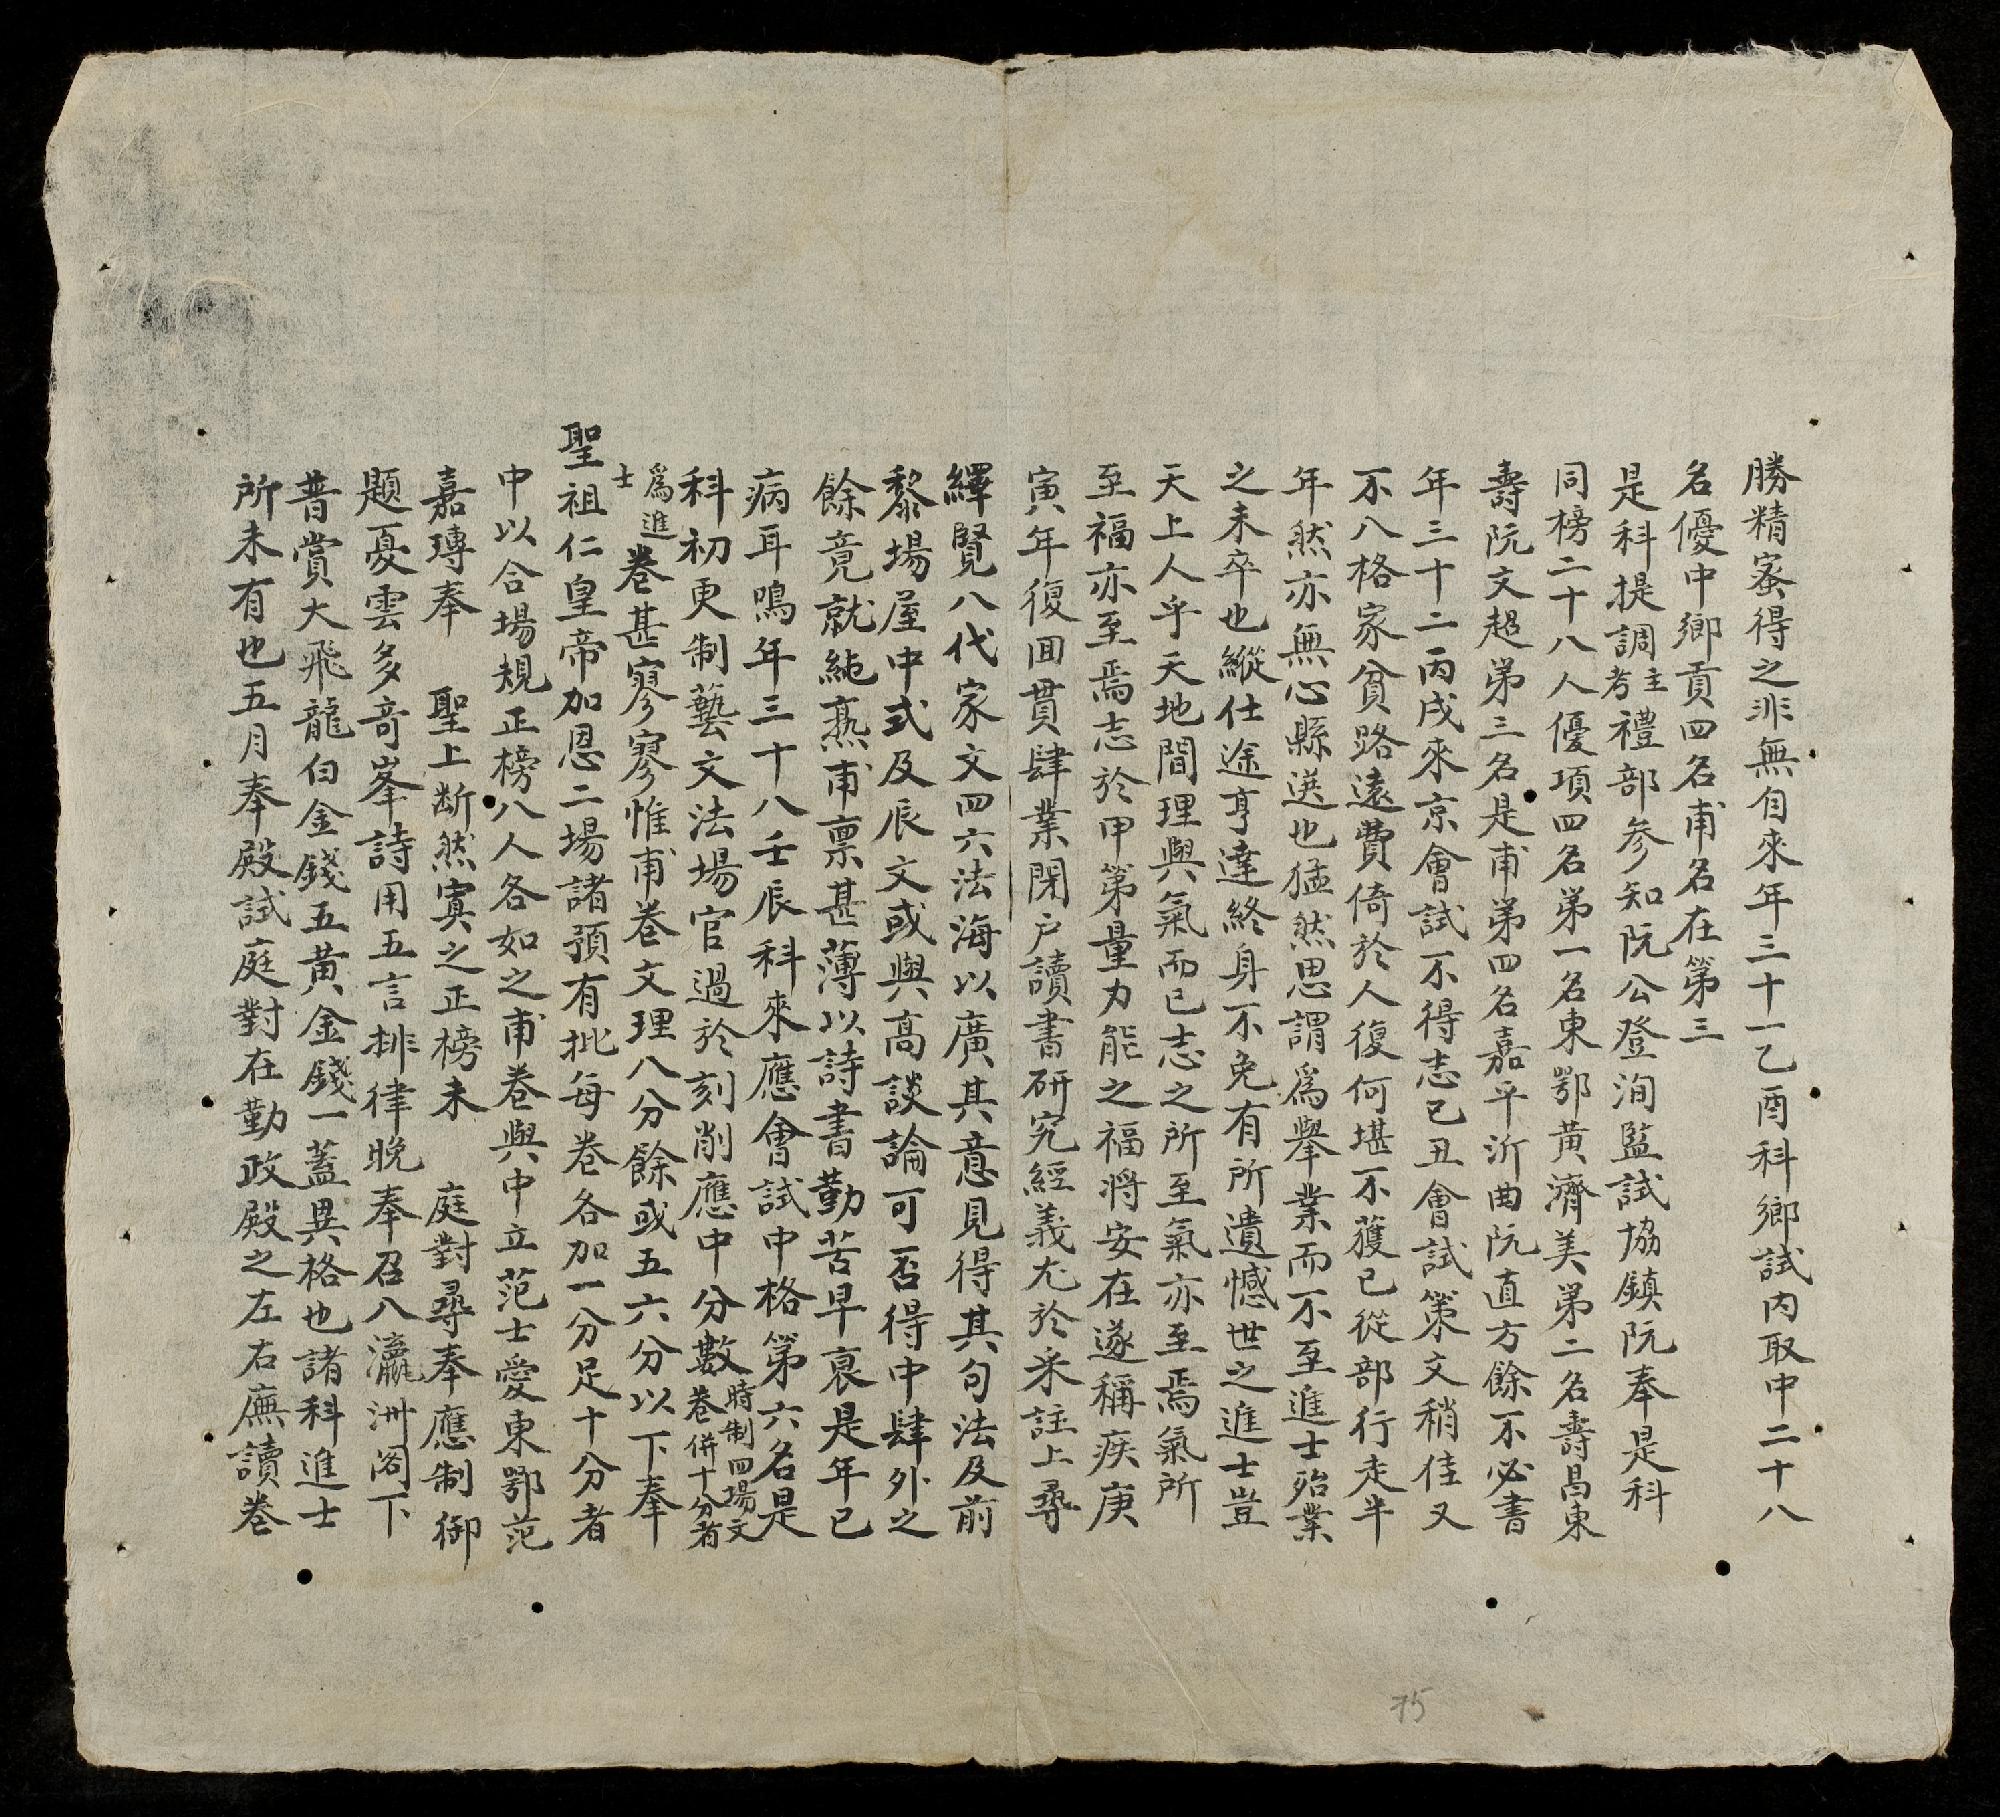 勝精蜜得之非無自來年三十一乙酉科鄉試內取中二十八
名優中鄉貢四名甫名在第三
是科提調主考禮部參知阮公登洵監試協鎮阮奉是科
同榜二十八人優項四名第一名東鄂黃濟美第二名壽昌東
壽阮文超第三名是甫第四名嘉平沂曲阮直方餘不必書
年三十二丙戌來京會試不得志己丑會試策文稍佳又
不八格家貧路遠費倚於人復何堪不獲已從部行走半
年然亦無心縣送也猛然思謂爲舉業而不至進士殆業
之未卒也縱仕途亨達終身不免有所遺憾世之進士豈
天上人乎天地間理與氣而已志之所至氣亦至焉氣所
至福亦至焉志於甲第量力能之福將安在遂稱疾庚
寅年復回貫肆業閉户讀書研究經義尤於釆註上尋
繹覽八代家文四六法海以廣其意見得其句法及前
黎場屋中式及辰文或與高談論可否得中肆外之
餘竟就純熟甫禀甚薄以詩書勤苦早衰是年已
病耳鳴年三十八壬辰科來應會試中格第六名是
科初更制藝文法場官過於刻削應中分數時制四場文卷併十分者
爲進士卷甚寥寥惟甫卷文理八分餘或五六分以下奉
聖祖仁皇帝加恩二場諸預有批每卷各加一分足十分者
中以合場規正榜八人各如之甫卷與中立范士愛東鄂范
嘉磚奉　聖上断然寘之正榜未　庭對尋奉應制御
題憂雲多奇峯詩用五言排律晚奉召八瀛洲閣下
普賞大飛龍白金錢五黃金錢一蓋異格也諸科進士
所未有也五月奉殿試庭對在勤政殿之左右廡讀卷
75